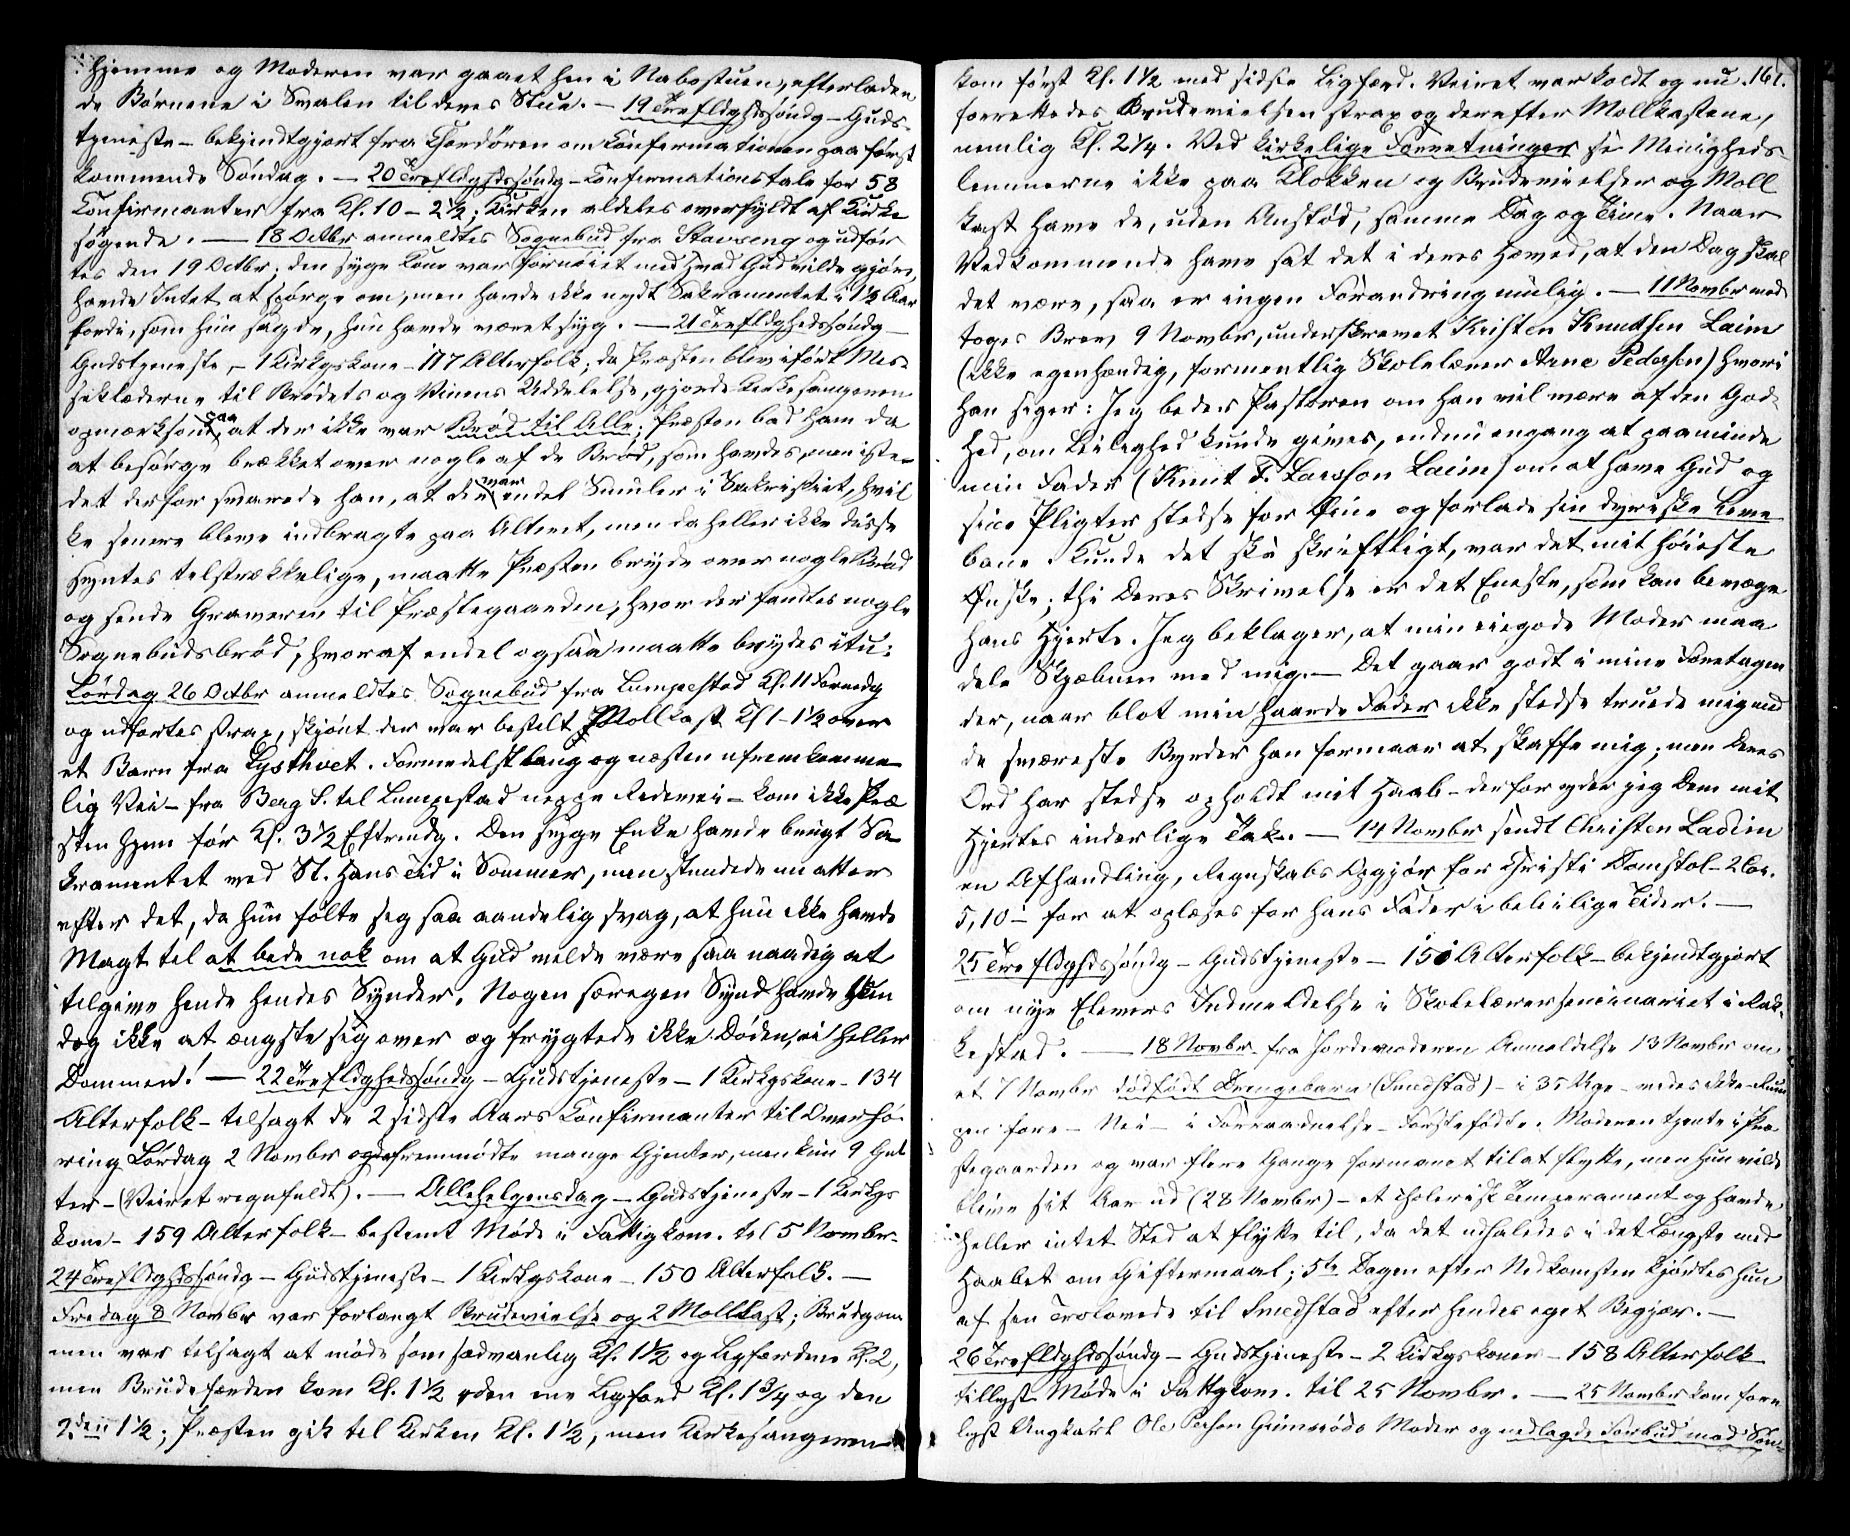 Hjemme og Moderen var gaaet hen i Nabostuen, efterladen
de Børnene i Svalen til deres Stue. — 19 Trefldghdssøndg – Guds-
tjeneste – bekjendtgjort fra Chordøren om Confirmationen paa først
kommende Søndag. — 20 Trefldghdssøndg – Confirmationstale for 58
Confirmanter fra Kl. 10 – 2½; Kirken aldeles overfyldt af Kirke
søgende. — 18 Octbr anmeldtes Sognebud fra Stavseng og udfør
tes den 19 Octbr; den syge Kone var fornøiet med hvad Gud vilde gjøre,
havde Intet at spørge om, men havde ikke nydt Sakramentet i 1½ Aar
fordi, som hun sagde, hun havde været syg. — 21 Trefldghedssøndg –
Gudstjeneste – 1 Kirkgskone – 117 Alterfolk; da Præsten blev iført Mes-
seklæderne til Brødets og Vinens Uddelelse, gjorde Kirkesangeren
opmærksom paa at der ikke var Brød til Alle; Præsten bad ham da
at besørge brækket over nogle af de Brød, som havdes, men iste-
det derfor svarede han, at der var endel Smuler i Sakristiet, hvil
ke senere bleve indbragte paa Alteret, men da heller ikke disse
syntes tilstrækkelige, maatte Præsten bryde over nogle Brød
og sende Graveren til Præstegaarden, hvor der fandtes nogle
Sognebudsbrød, hvoraf endel ogsaa maatte brydes itu.
Lørdag 26 Octbr anmeldtes Sognebud fra Lumpestad Kl. 11 Formdg
og udførtes strax, skjønt der var bestilt Moldkast Kl 1–1½ over
et Barn fra Lysthvet. Formedelst lang og næsten ufremkomme
lig Vei – fra Berg S. til Lumpestad neppe Redevei – kom ikke Præ
sten hjem før Kl. 3½ Eftrmdg. Den syge Enke havde brugt Sa
kramentet ved St. Hans Tid i Sommer, men stundede nu atter
efter det, da hun følte seg saa aandelig svag, at hun ikke havde
Magt til at bede nok om at Gud vilde være saa naadig at
tilgive hende hendes Synder. Nogen særegen Synd havde hun
dog ikke at ængste sig over og frygtede ikke Døden, ei heller
Dommen! — 22 Trefldghedssøndg – Gudstjeneste – 1 Kirkgskone – 134
Alterfolk – tilsagt de 2 sidste Aars Confirmanter til Overhø-
ring Lørdag 2 Novmbr og da fremmødte mange Gjenter, men kun 9 Gut
ter – (Veiret regnfuldt). — Allehelgensdag – Gudstjeneste – 1 Kirkgs
kone – 159 Alterfolk – bestemt Møde i Fattigkom. til 5 Novmbr.
24 Trefldghdssøndg – Gudstjeneste – 1 Kirkgskone – 150 Alterfolk. —
Fredag 8 Novmbr var forlangt Brudevielse og 2 Moldkast; Brudgom
men var tilsagt at møde som sædvanlig Kl. 1½ og Ligfærdene Kl. 2,
men Brudefærden kom Kl. 1½ og den ene Ligfærd Kl. 1¾ og den
2den 1½; Præsten gik til Kirken Kl. 1½, men Kirkesangeren
161.
kom først Kl. 1½ med sidste Ligfærd. Veiret var koldt og nu
forrettedes Brudevielsen strax og derefter Moldkastene,
nemlig Kl. 2¼. Ved kirkelige Forretninger se Menigheds-
lemmerne ikke paa Klokken og Brudevielser og Mold
kast have de, uden Anstød, samme Dag og Time. Naar
Vedkommende have sat det i deres Hoved, at den Dag skal
det være, saa er ingen Forandring mulig. — 11 Novmbr mod
toges Brev, 9 Novmbr, underskrevet Kristen Knudsen Laim
(ikke egenhændig, formentlig Skolelærer Arne Pedersen) hvori
han siger: Jeg beder Pastoren om han vil være af den God-
hed, om Leilighed kunde gives, endnu engang at paaminde
min Fader (Knut F. Larsson Laim) om at have Gud og
sine Pligter stedse for Øine og forlade sin dyriske Leve
bane. Kunde det ske skriftligt, var det mit høieste
Ønske; thi Deres Skrivelse er det Eneste, som kan bevæge
hans Hjerte. Jeg beklager, at min eiegode Moder maa
dele Skjæbnen med mig. — Det gaar godt i mine Foretagen
der, naar blot min haarde Fader ikke stedse truede mig med
de sværeste Byrder han formaar at skaffe mig; men Deres
Ord har stedse opholdt mit Haab – derfor yder jeg Dem mit
Hjertes inderlige Tak. — 14 Novmbr sendt Christen Ladim
en Afhandling, Regnskabs Opgjør for Christi Domstol – 2 Cor.
5,10 – for at oplæses for hans Fader i beleilige Tider. —
25 Trefldghdssøndg – Gudstjeneste – 151 Alterfolk – bekjendtgjort
om nye Elevers Indmeldelse i Skolelærerseminariet i Rak-
kestad. — 18 Novmbr fra Jordemoderen Anmeldelse 13 Novmbr om
et 7 Novmbr dødfødt Drengebarn (Smedstad) – i 35 Uge – vedes ikke –
pen fore – Nei – i Forraadnelse – Førstefødte. Moderen tjente i Præ
stegaarden og var flere Gange formanet til at flytte, men hun vilde
blive sit Aar ud (28 Novmbr) – et cholerisk Temperament og havde
heller intet Sted at flytte til, da det udhaledes i det Længste med
Haabet om Giftermaal; 5te Dagen efter Nedkomsten kjørtes hun
af sen Trolovede til Smedstad efter hendes eget Begjær. —
26 Trefldghdssøndg – Gudstjeneste – 2 Kirkgskoner – 158 Alterfolk –
tillyst Møde i Fattgkom. til 25 Novmbr. — 25 Novmbr kom forn
lyst Ungkarl Ole Pehsen Grimsrøds Moder og nedlagde Forbud mod Søn-